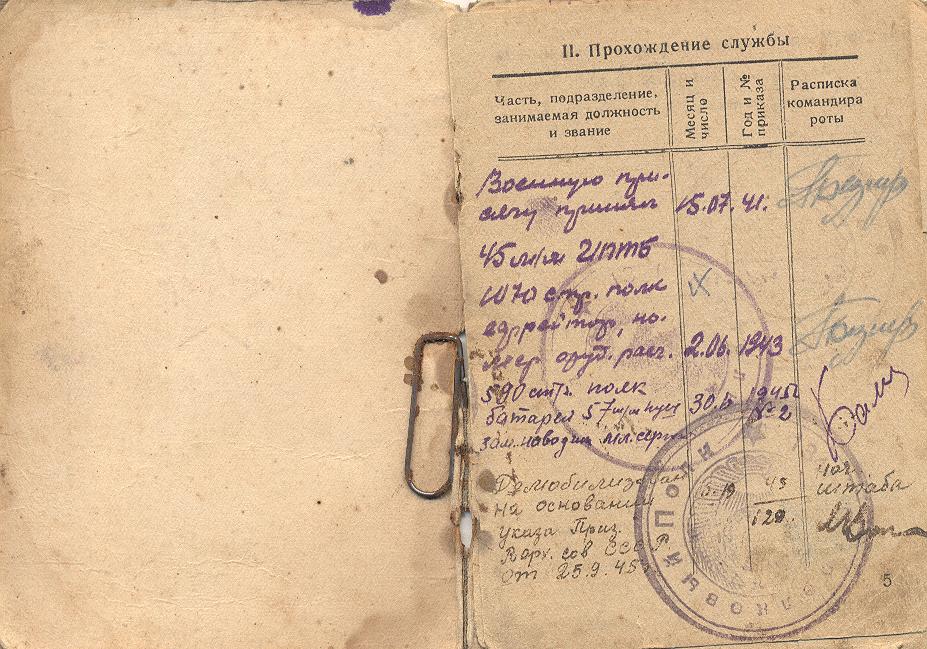 II. Прохождение службы
Часть, подразделение, занимаемая должность и звание
Месяц и число
Год и № приказа
Расписка командира роты
Военную при-
сягу принял 15.07. 41.
45 м/м ИПТБ
1070 стр. полк
ефрейтор, но-
мер оруд. расч. 2.06. 1943
590 стр. полк
батарея 57 м/м пуш 30.5 1945г
зам. наводч мл. серж №2
Демобилизован
на основании
указа През.
Верх. сов СССР
от 25.9.45г
43
120
нач.
штаба
ПОЛКОВЫЙ
5